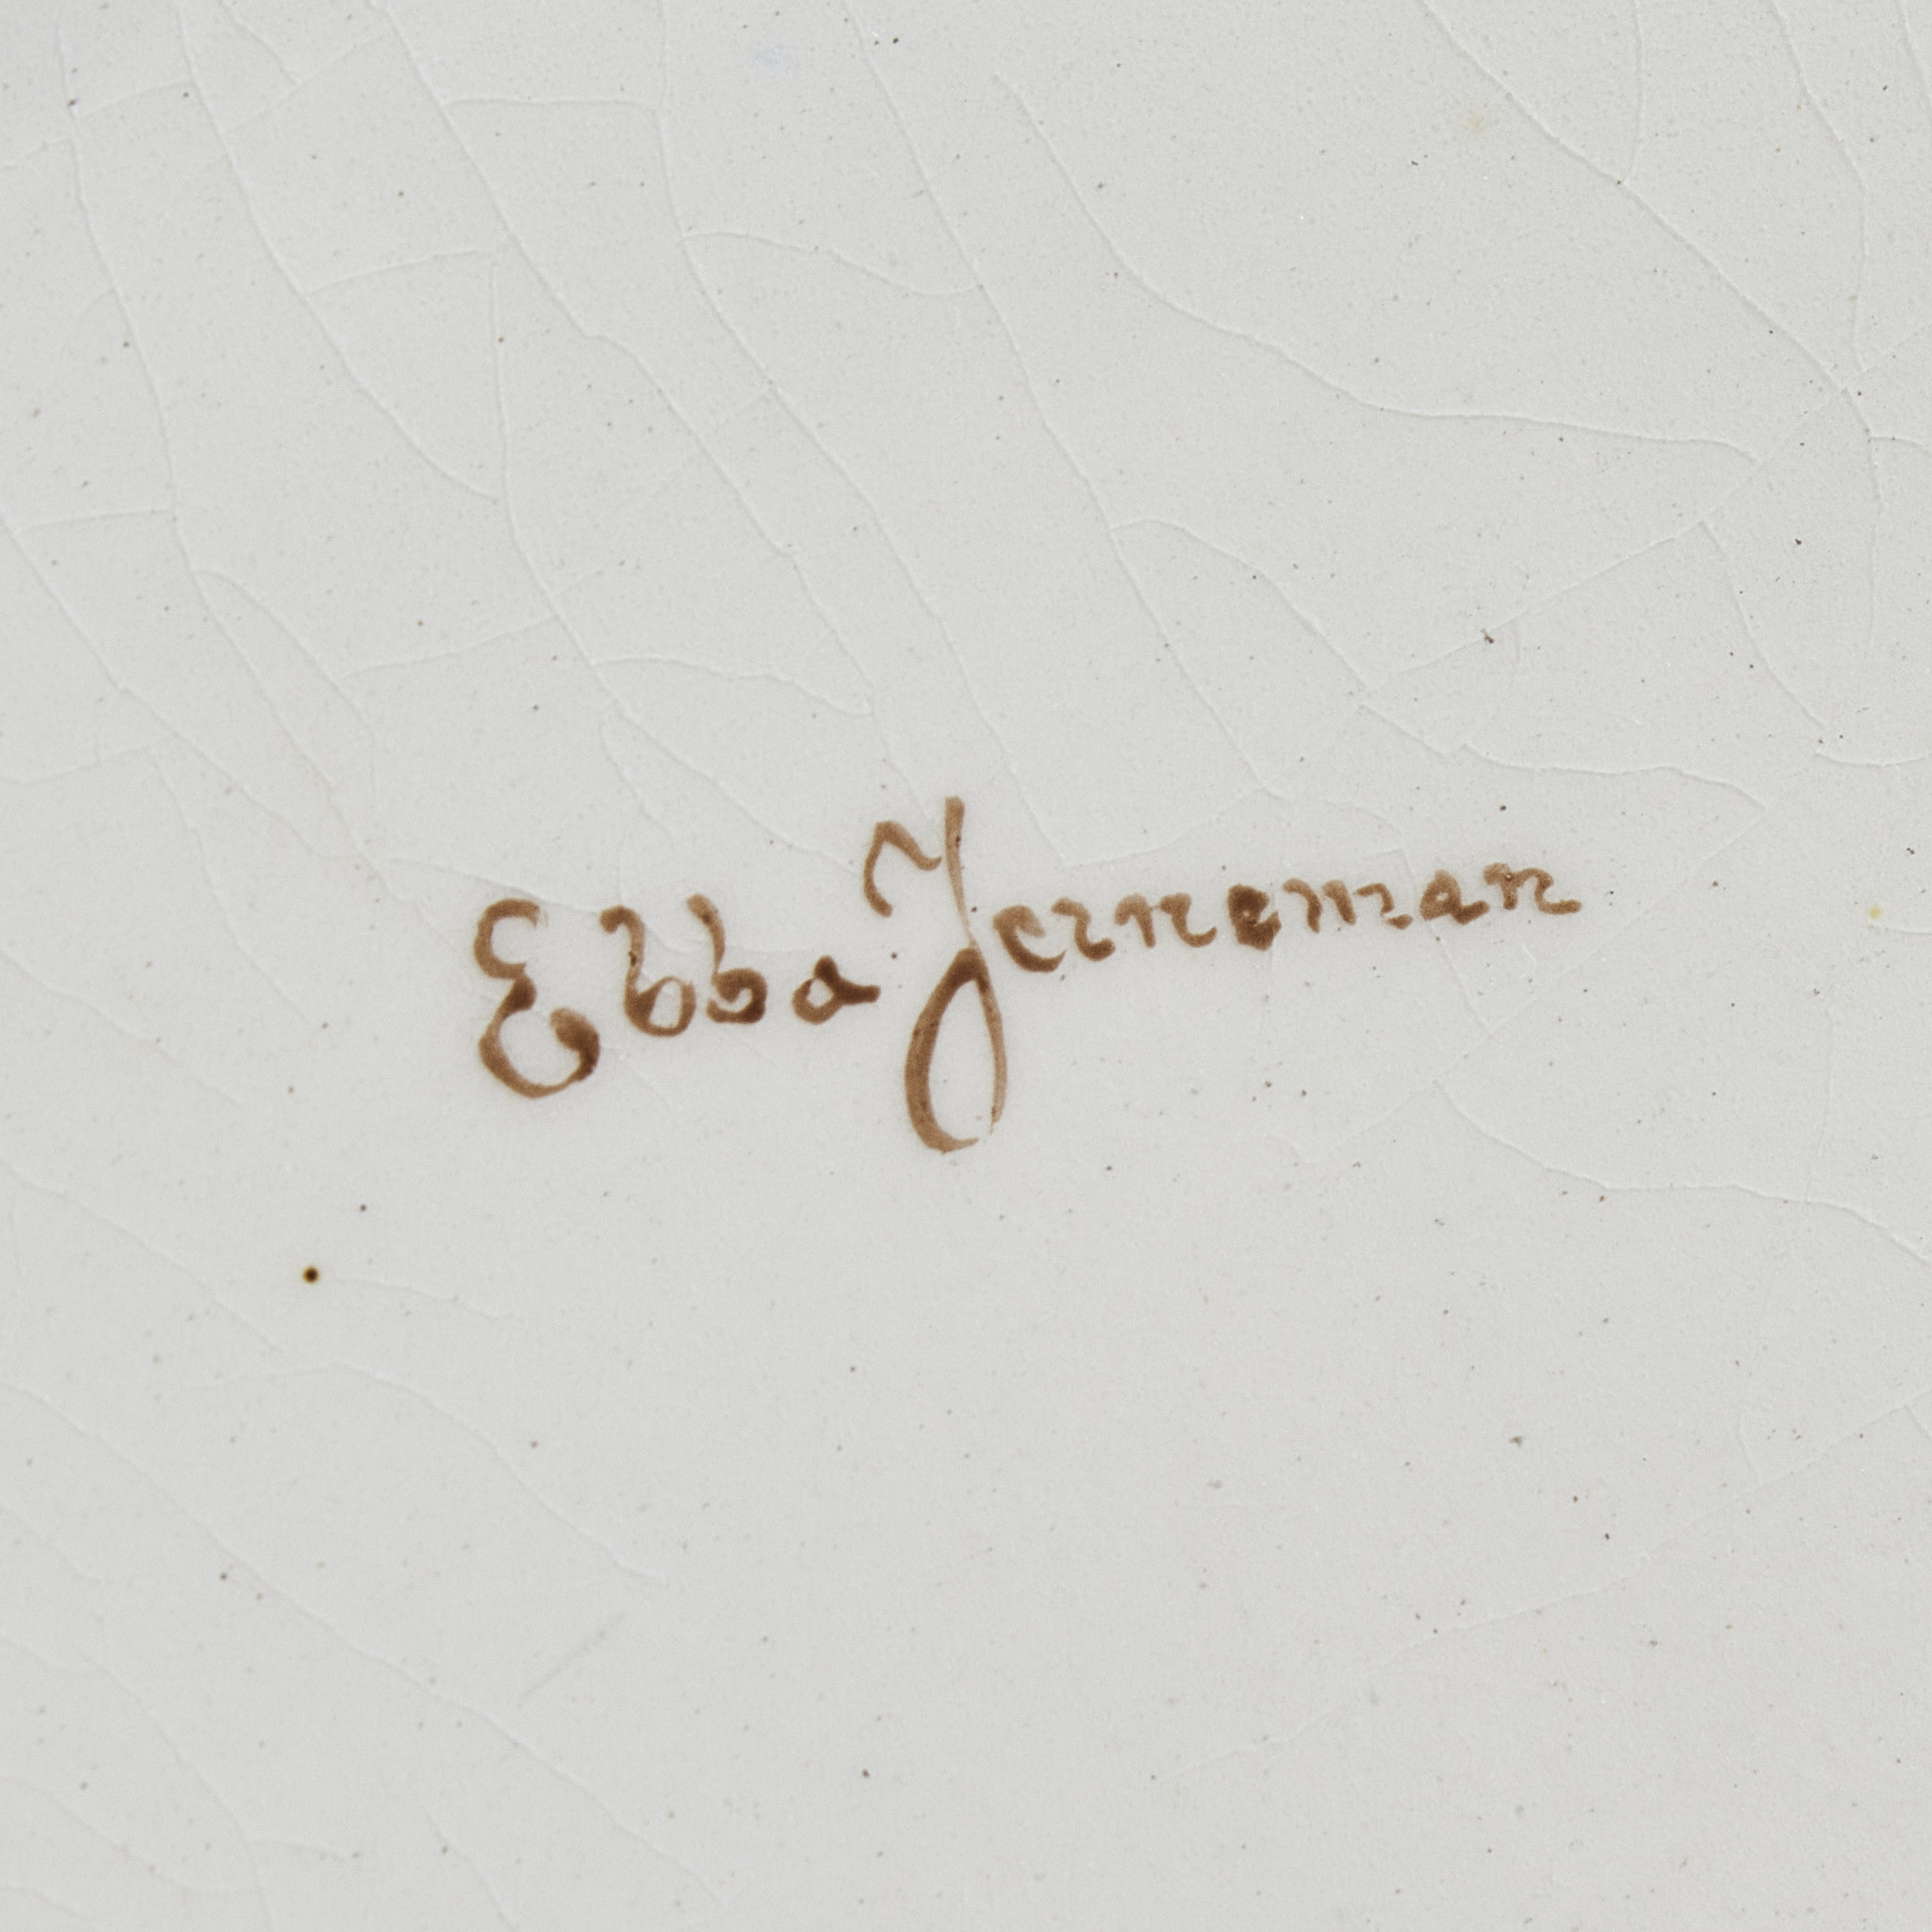 Ebba Jerneman